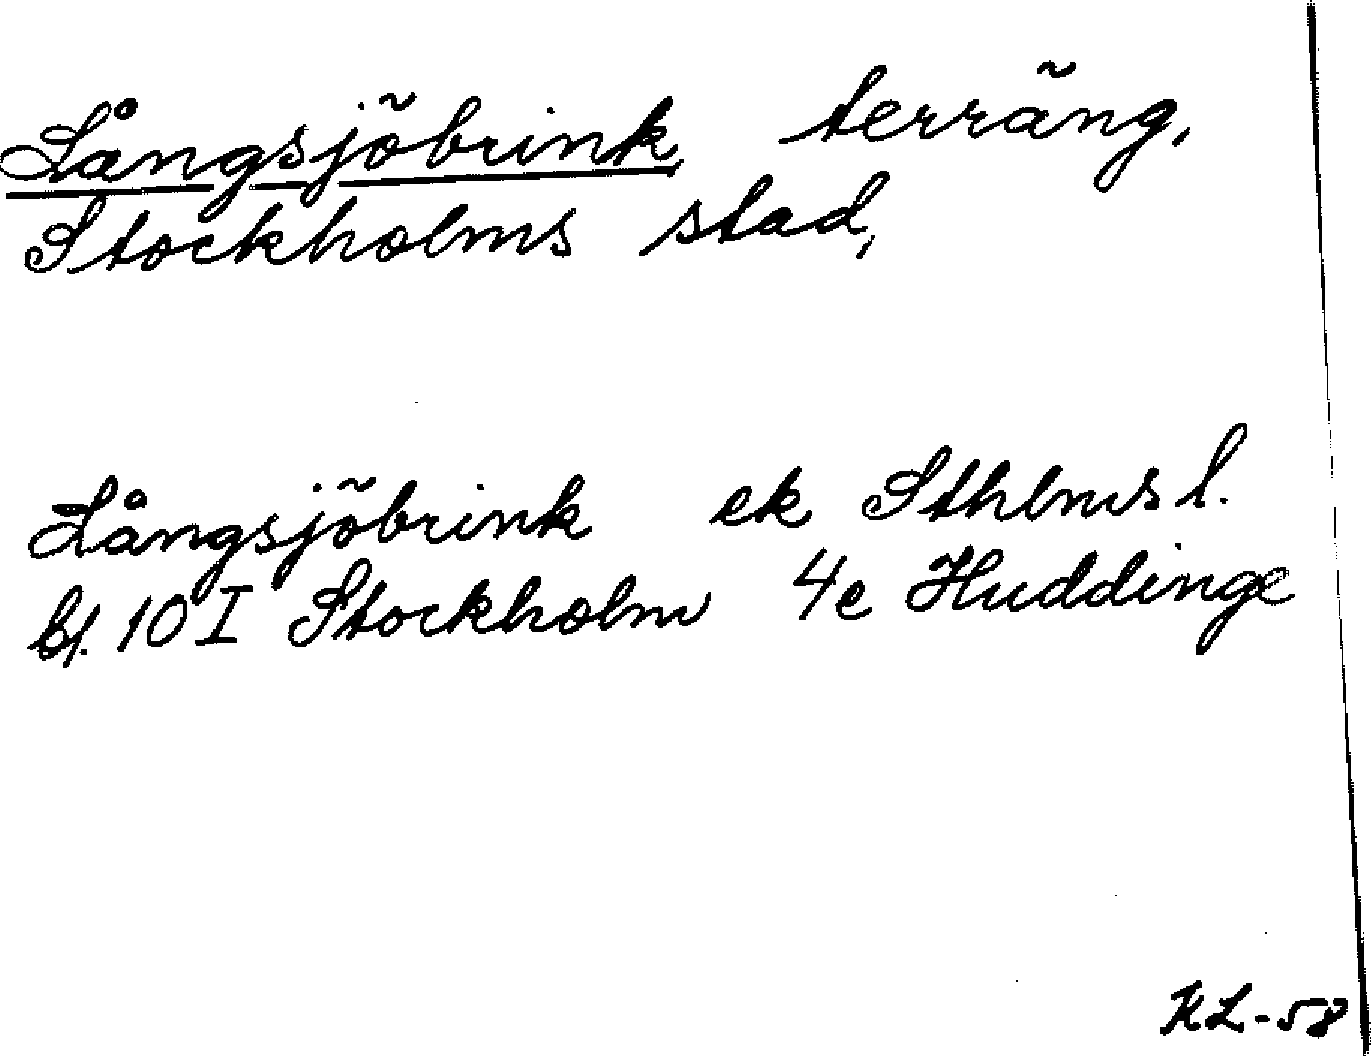 Långsjöbrink, terräng,
Stockholms stad,
Långsjöbrink ek Sthlms l.
bl. 10 I Stockholm 4e Huddinge
KL-58